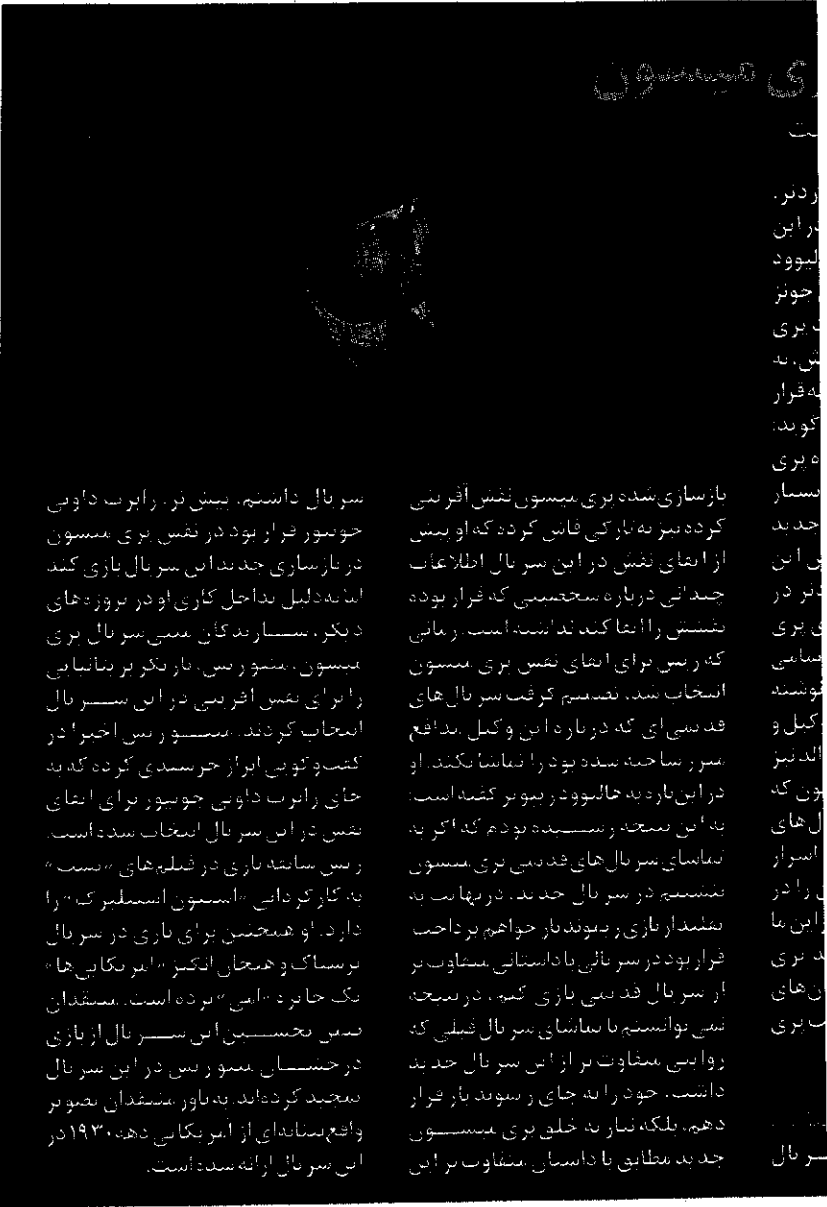 ری میسون
ست
ردنر.
در این
لیوود
جونز
ب پری
ش، به
ه قرار
گوید:
ه پری
بسیار
جدید
ی این
دنر در
ی پری
تمامی
نوشته
وکیل و
الد نیز
ون که
ل‌های
اسرار
ی را در
ز این ما
ند پری
ن‌های
ب پری
ـریال
بازسازی‌شده پری میسون نقش‌آفرینی
کرده نیز به‌تازگی فاش کرده که او پیش
از ایفای نقش در این سریال اطلاعات
چندانی درباره شخصیتی که قرار بوده
نقشش را ایفا کند نداشته است. زمانی
که ریس برای ایفای نقش پری میسون
انتخاب شد، تصمیم گرفت سریال‌های
قدیمی‌ای که درباره این وکیل مدافع
مبرز ساخته شده بود را تماشا نکند. او
در این‌باره به هالیوود ریپورتر گفته است:
به این نتیجه رسیده بودم که اگر به
تماشای سریال‌های قدیمی پری میسون
بنشینم در سریال جدید، در نهایت به
تقلید از بازی ریموند بار خواهم پرداخت
قرار بود در سریالی با داستانی متفاوت‌تر
از سریال قدیمی بازی کنم، در نتیجه
نمی‌توانستم با تماشای سریال قبلی که
روایتی متفاوت‌تر از این سریال جدید
داشت، خود را به جای ریموند بار قرار
دهم، بلکه نیاز به خلق پری میسون
جدید مطابق با داستان متفاوت‌تر این
سریال داشتم. پیش‌تر، رابرت داونی
جونیور قرار بود در نقش پری میسون
در بازسازی جدید این سریال بازی کند
اما به‌دلیل تداخل کاری او در پروژه‌های
دیگر، سازندگان مینی‌سریال پری
میسون، متیو ریس، بازیگر بریتانیایی
را برای نقش‌آفرینی در این سریال
انتخاب کردند. متیو ریس اخیرا در
گفت‌وگویی ابراز خرسندی کرده که به
جای رابرت داونی جونیور برای ایفای
نقش در این سریال انتخاب شده است.
ریس سابقه بازی در فیلم‌های «پست»
به کارگردانی «استیون اسپیلبرگ» را
دارد. او همچنین برای بازی در سریال
ترسناک و هیجان‌انگیز «امریکایی‌ها»
یک جایزه «امی» برده است. منتقدان
پیش نخستین این سریال از بازی
درخشان متیو ریس در این سریال
تمجید کرده‌اند. به باور منتقدان تصویر
واقع‌بینانه‌ای از آمریکایی دهه ۱۹۳۰ در
این سریال ارائه شده است.